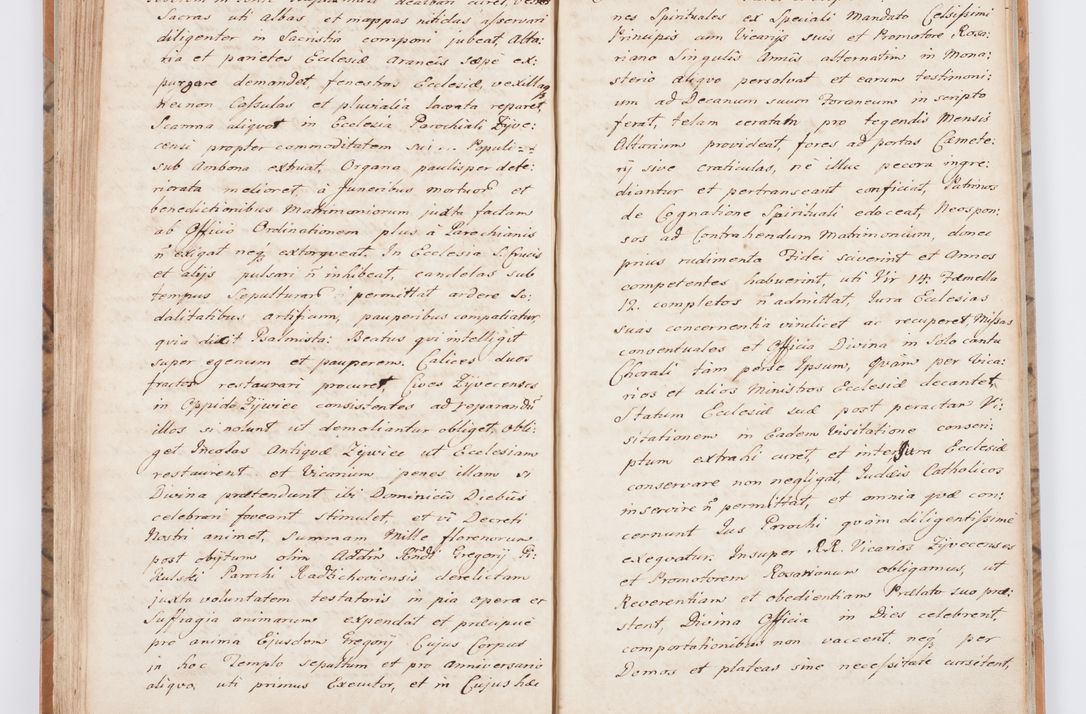 Sacras uti Albas, et mappas nitidas asservari
diligenter in Sacristia componi jubeat, Alta:
ria et parietes Ecclesiæ Araneis sæpe ex:
purgare demandet, fenestras Ecclesiæ, vexilla
nec non Capsulas et pluvialia lacrata reparet,
Scamna aliquot in Ecclesia Parochiali Zÿve:
censi propter commoditatem sui ... Populi =
sub Ambona extruat, Organa paulisper dete:
riorata melioret, à funeribus mortuor et
benedictionibus Matrimoniorum juxta factam
ab Officio Ordinationem plus à Parochianis
n̄ exigat neq; extorqueat. In Ecclesia S. Crucis
et alijs pulsari n̄ inhibeat, candelas sub
tempus Sepulturar permittat ardere So:
dalitatibus artificum, pauperibus compatiatur
quia dixit Psalmista: Beatus qui intelligit
super egenum et pauperem. Calices duos
fractos restaurari procuret, Cives Zÿvecenses
in Oppido Zÿwiec consistentes ad reparandū
illos si nolunt ut demoliantur obliget, obli:
get Incolas Antiquæ Zÿwiec ut Ecclesiam
restaurent et Vicarium penes illam si
Divina prætendunt ibi Dominicis Diebus
celebrari foveant stimulet, et vi Decreti
Nostri animet, summam Mille florenorum
post obitum olim Adm Rndi Gregorij Pi:
kulski Parochi Radzichoviensis derelictam
juxta voluntatem testatoris in pia opera et
Suffragia animarum expendat et præcipuè
pro anima Ejusdem Gregorij Cujus Corpus
in hoc Templo sepultum et pro anniversario
aliquo, uti primus Executor, et in Cujus hæ
nes Spirituales ex Speciali Mandato Celsissimi
Principis cum Vicarijs suis et Promotore Rosa:
riano Singulis Annis alternatim in Mona:
sterio aliquo persolvat et earum testimoni:
um ad Decanum suum Foraneum in scripto
ferat, telam ceratam pro tegendis Mensis
Altarium provideat, fores ad portas Cæmete:
rij sive craticulas, nè illuc pecora ingre:
diantur et pertranseant conficiat, Patrinos
de Cognatione Spirituali edoceat, Neospon:
sos ad Contrahendum Matrimonium, donec
prius rudimenta Fidei sciverint et Annos
competentes habuerint, uti Vir 14. Fæmella
12. completos n̄ admittat, Jura Ecclesias
suas concernentia vindicet ac recuperet, Missas
conventuales et Officia Divina in Solo cantu
Chorali tàm per se Ipsum, quàm per Vica:
rios et alios Ministros Ecclesiæ decantet,
Statum Ecclesiæ suæ post peractam Vi:
sitationem in Eadem Visitatione conscri:
ptum extrahi curet, et inter Jura Ecclesiæ
conservare non negligat, Judæis Catholicos
inservire n̄ permittat, et omnia quæ con:
cernunt Jus Parochi quàm diligentissimè
exequatur. Insuper R.R. Vicarios Zÿvecenses
et Promotorem Rosarianum obligamus, ut
Reverentiam et obedientiam Prælato suo præ:
stent, Divina Officia in Dies celebrent,
comportationibus non vaccent, neq; per
Domos et plateas sine necessitate cursitent,